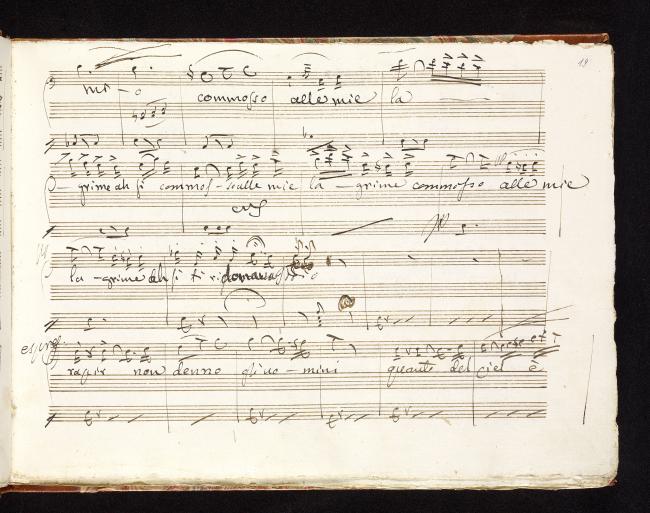 19
mi-o commosso alle mie la
grime ah sì commos-so alle mie la-grime commosso alle mie
la-grime ah sì ti domanda
rapir non denno gli uo-mini quanto del ciel è